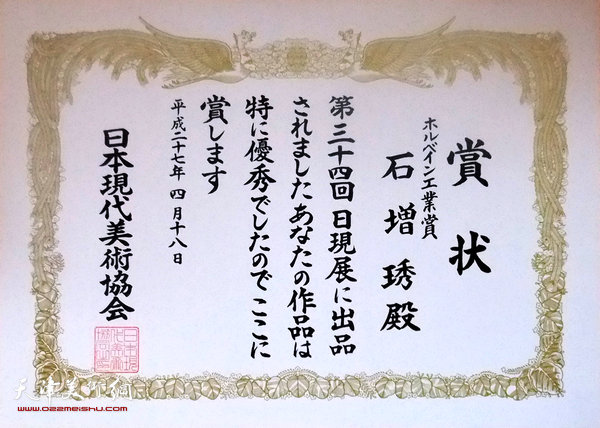 賞状
ホルベイン工業賞
石増琇殿
第三十四回日現展に出品
されましたあなたの作品は
特に優秀でしたのでここに
賞します
平成二十七年 四月十八日
日本現代美術協会
天津美术网
www.022meishu.com